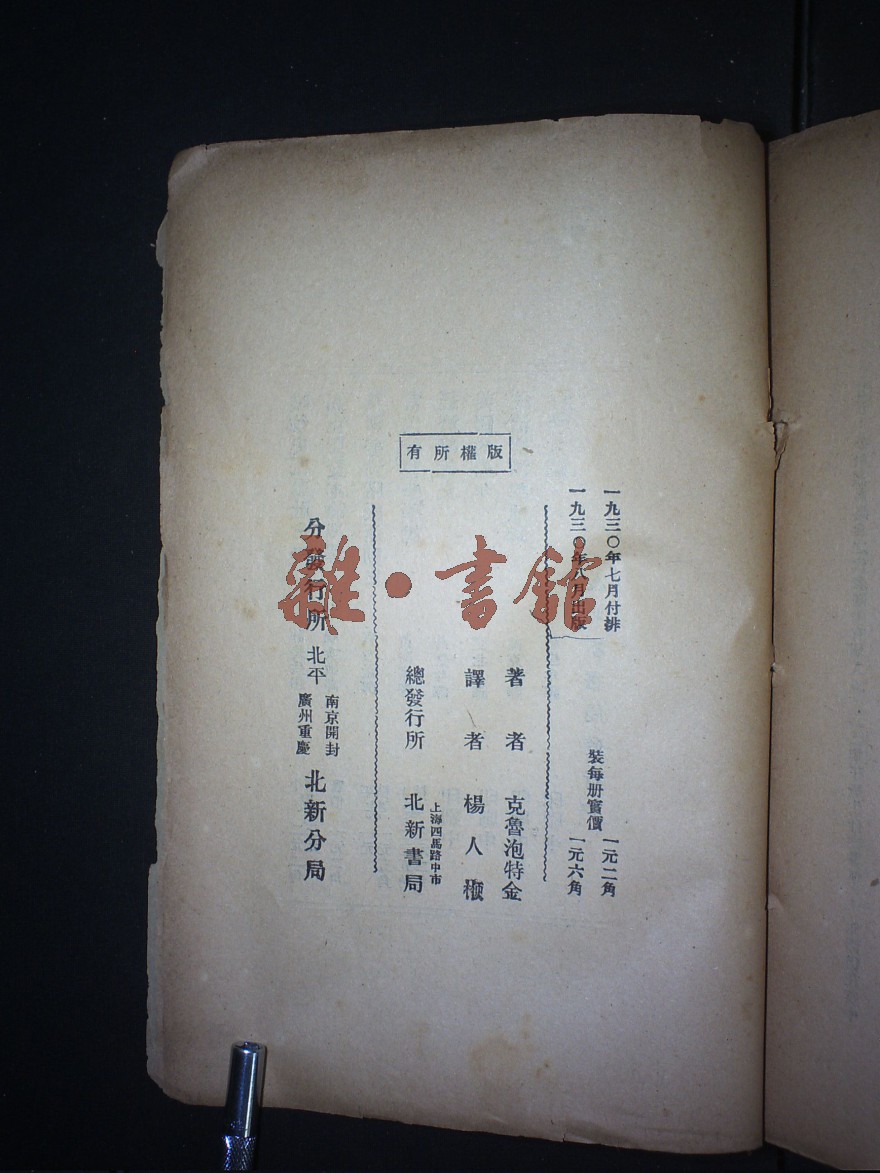 版權所有
一九三〇年七月付排
一九三〇年八月出版
裝每册實價
一元二角
一元六角
著者 克魯泡特金
譯者 楊人楩
總發行所 上海四馬路中市 北新書局
分發行所 北平 南京開封 廣州重慶 北新分局
雜·書館